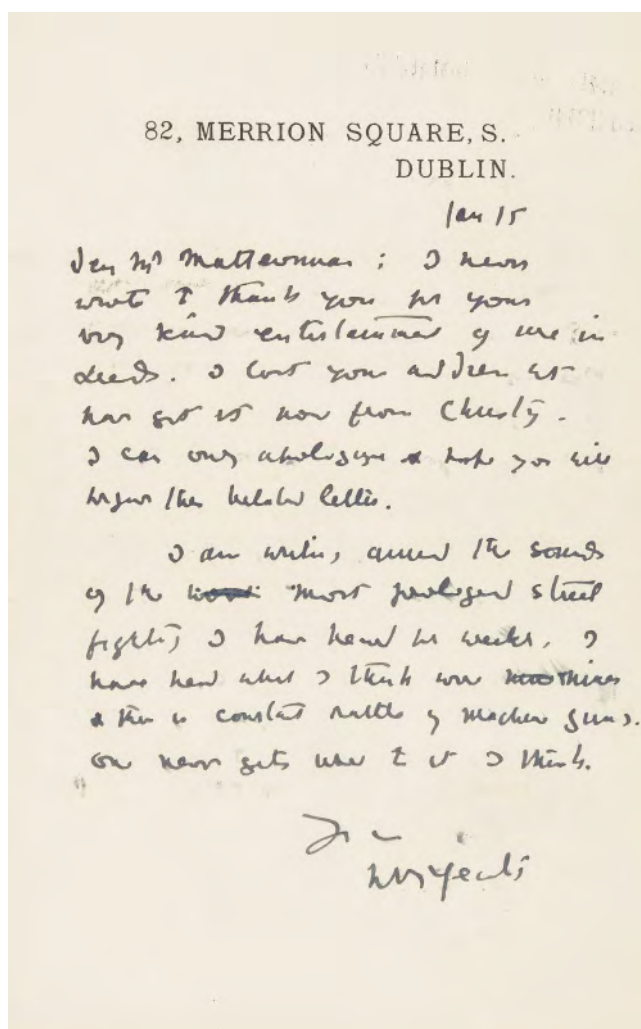 82, MERRION SQUARE, S.
DUBLIN.
Jan 15
Dear Mr Matterson : I never
wrote to thank you for your
very kind entertainment of me in
Leeds. I lost your address but
have got it now from Christy.
I can only apologise & hope you will
forgive this belated letter.
I am writing amid the sounds
of the most prolonged street
fighting I have heard for weeks. I
have heard what I think were mines
& there is constant rattle of machine guns.
One never gets used to it I think.
Yrs
WB Yeats